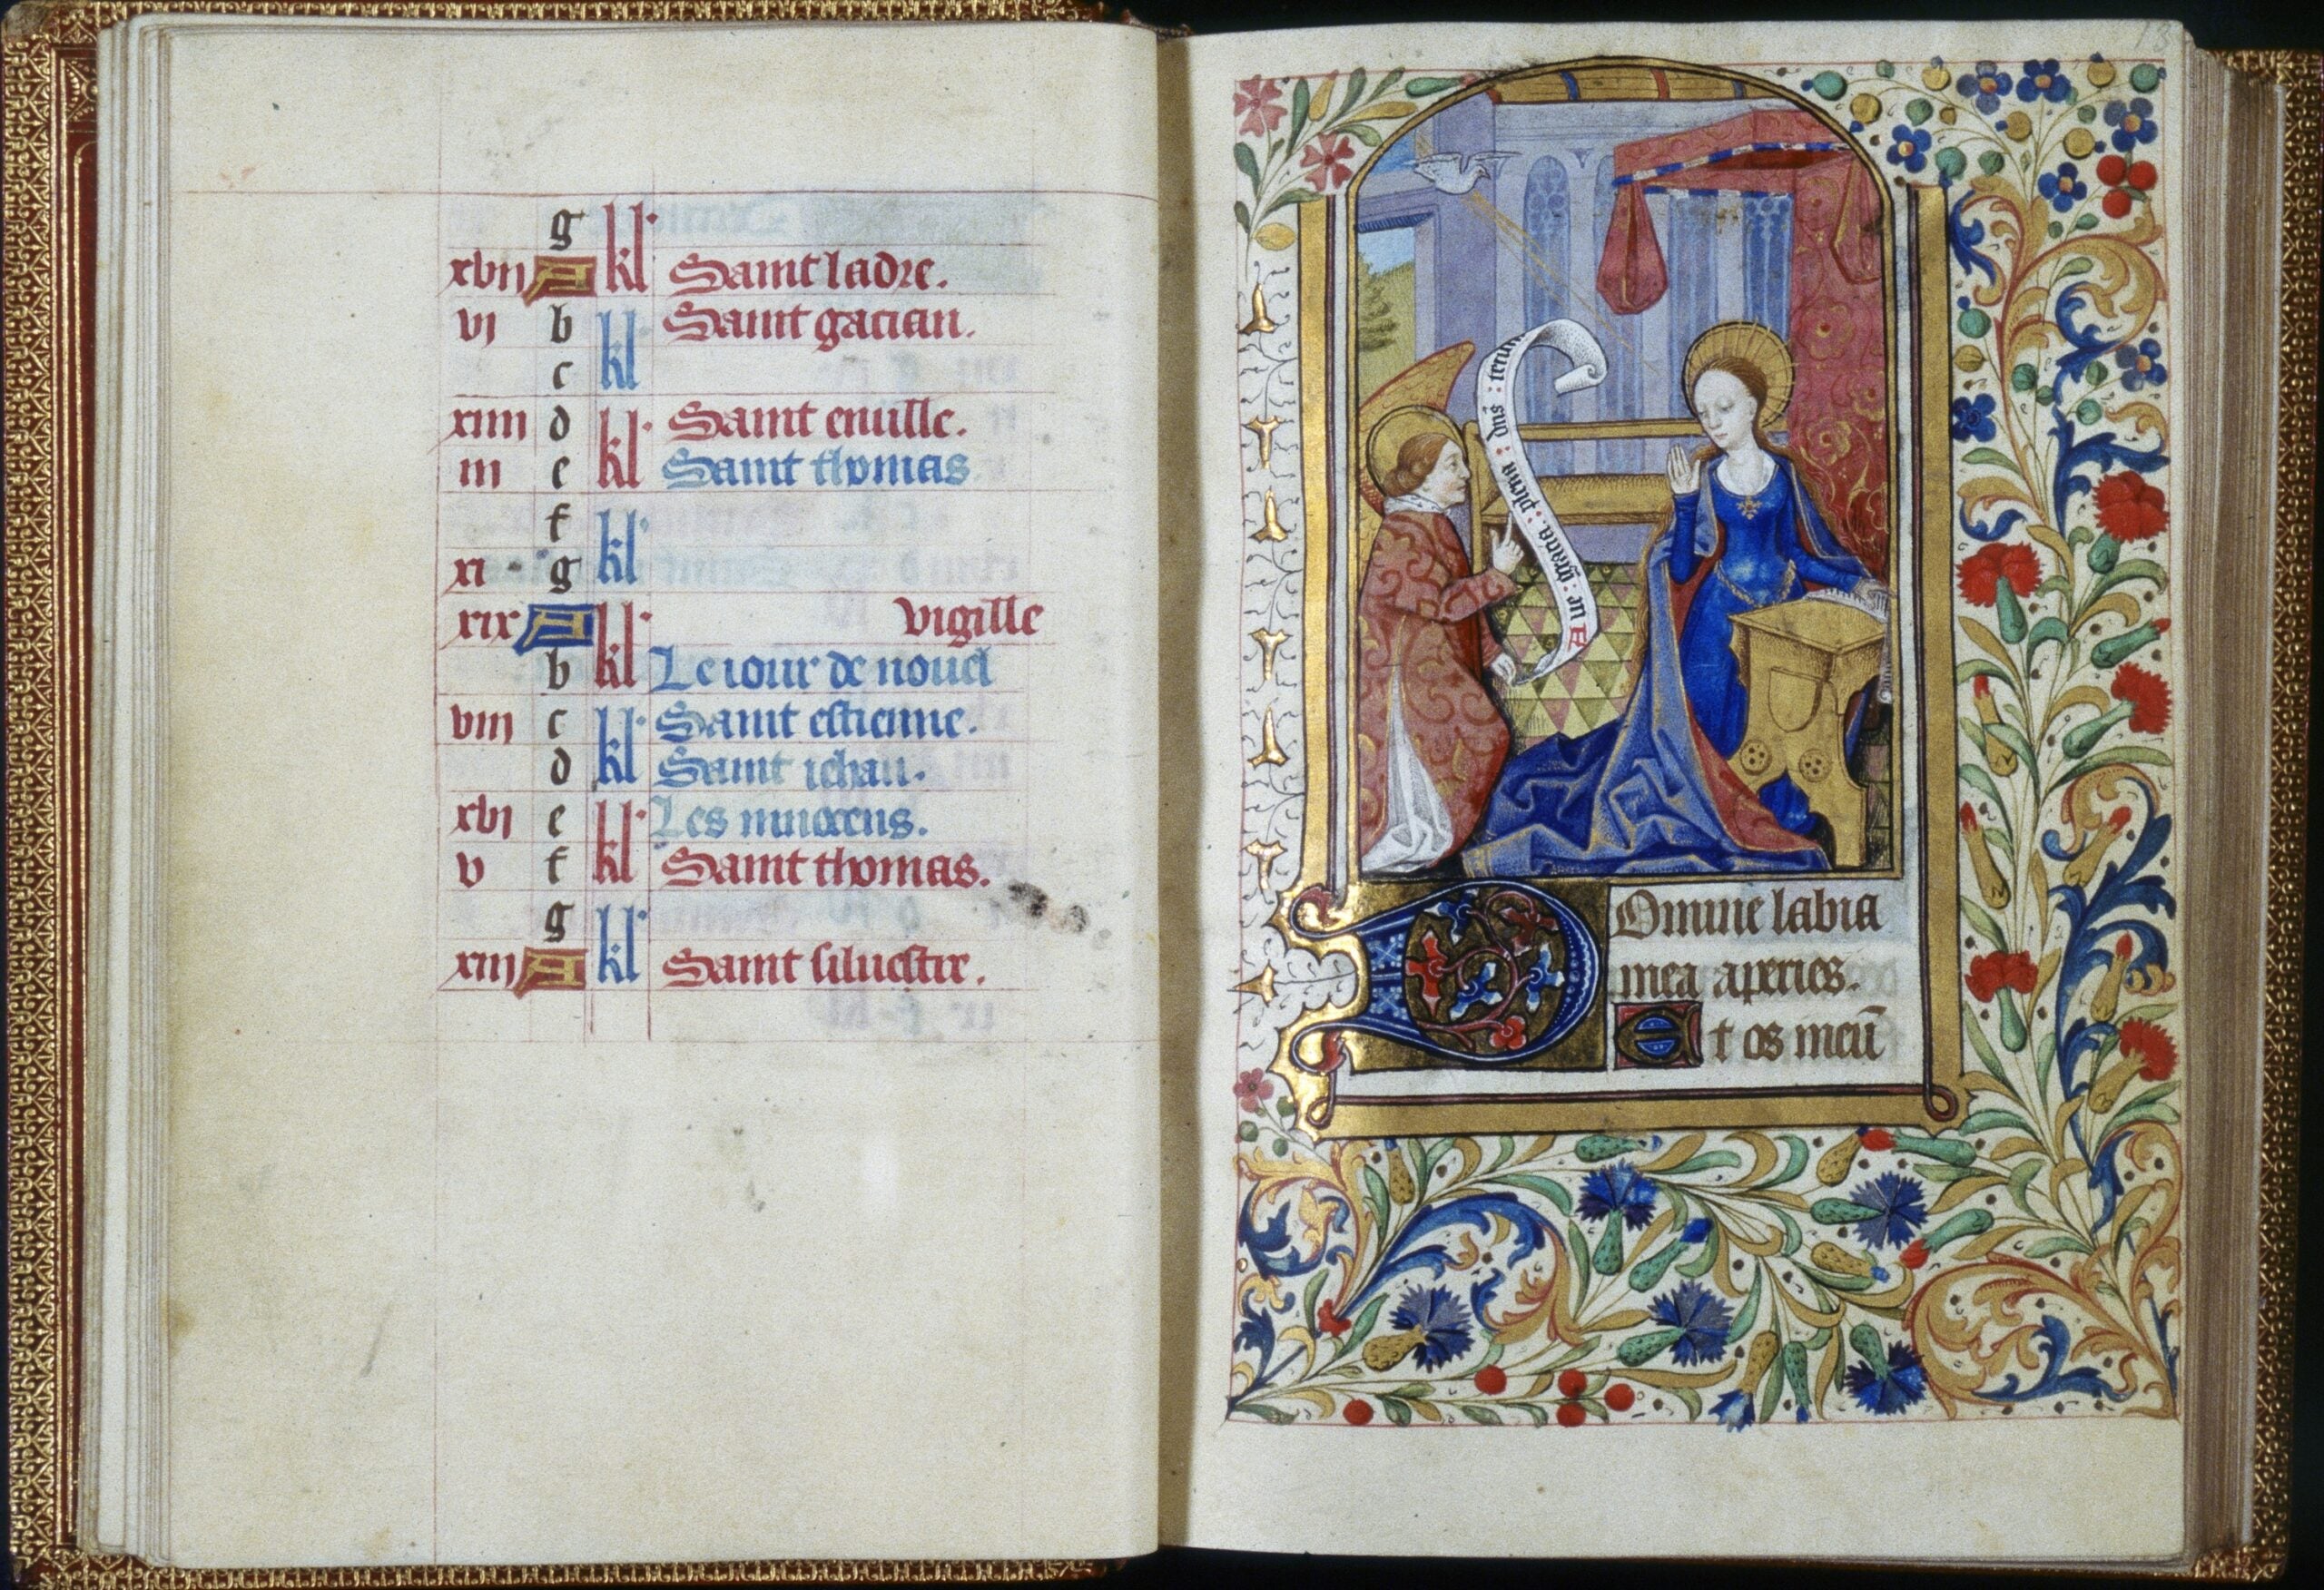 g
xvii A kl Saint ladre.
vi b kl Saint gacian.
c
xiiii d kl Saint emille.
iii e Saint thomas
f kl
xi g
xix A kl vigille
b Le iour de nouel
viii c kl Saint estienne.
d Saint iehan.
xvi e kl Les innocens.
v f Saint thomas.
g kl
xiii A Saint siluestre.
13
Aue : gracia : plena : dns : tecum
Domine labia
mea aperies.
Et os meū